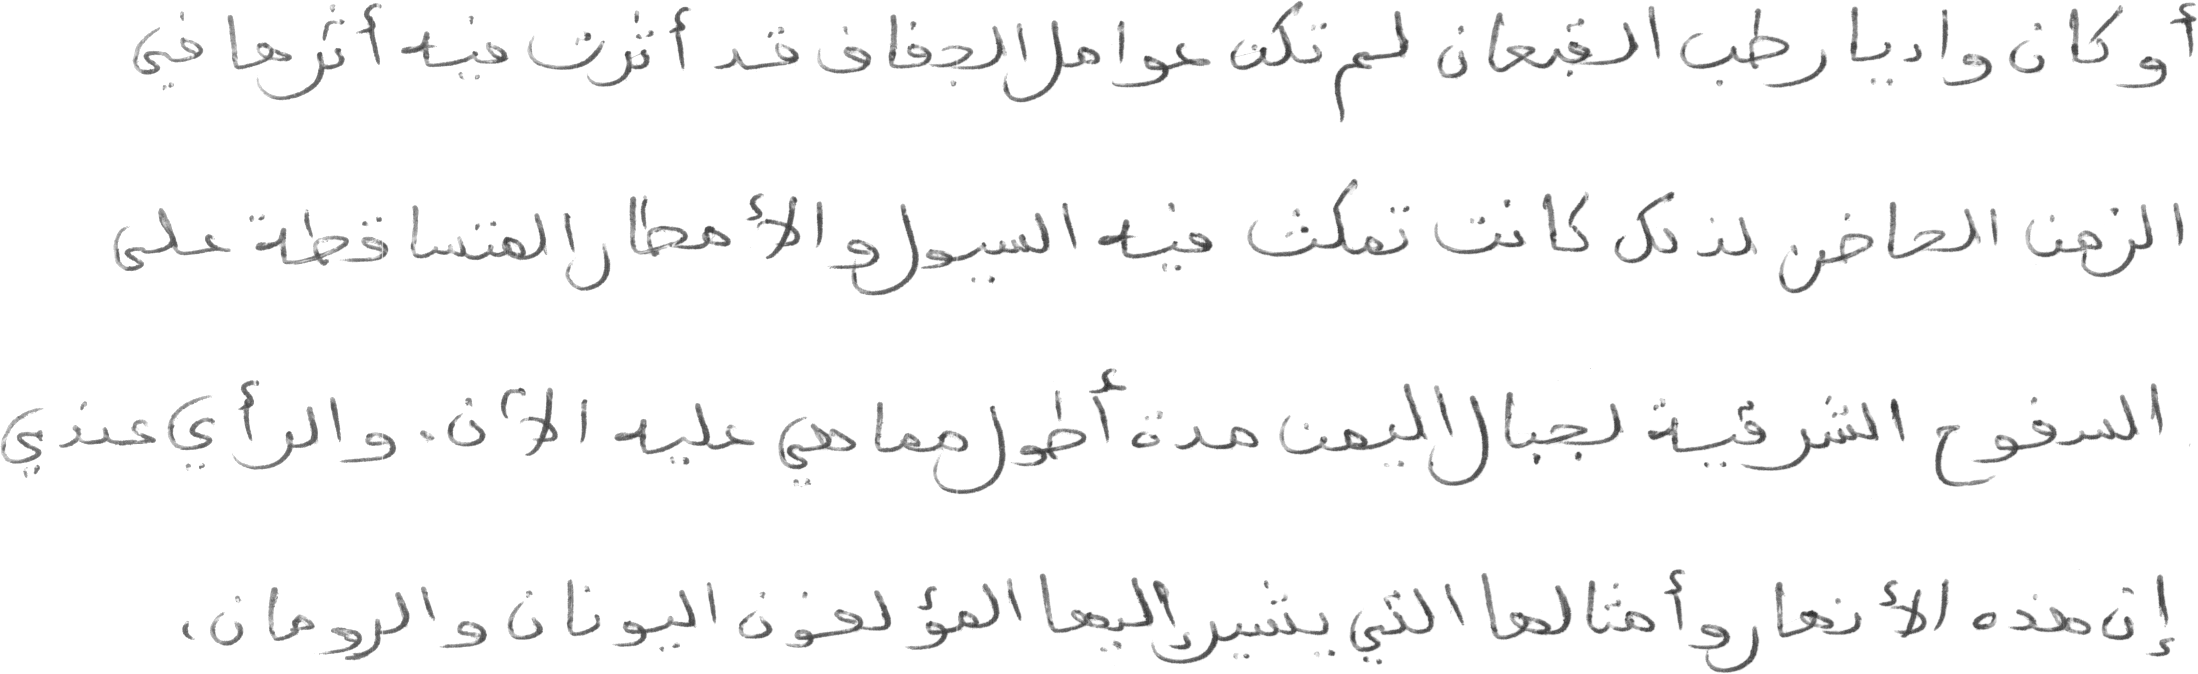 أو كان واديا رطب القيعان لم تكن عوامل الجفاف قد أثرت فيه أثرها في
الزمن الحاضر لذلك كانت تمكث فيه السيول والأمطار المتساقطة على
السفوح الشرقية لجبال اليمن مدة أطول مما هي عليه الآن. والرأي عندي
إن هذه الأنهار وأمثالها التي يشير إليها المؤلفون اليونان والرومان،